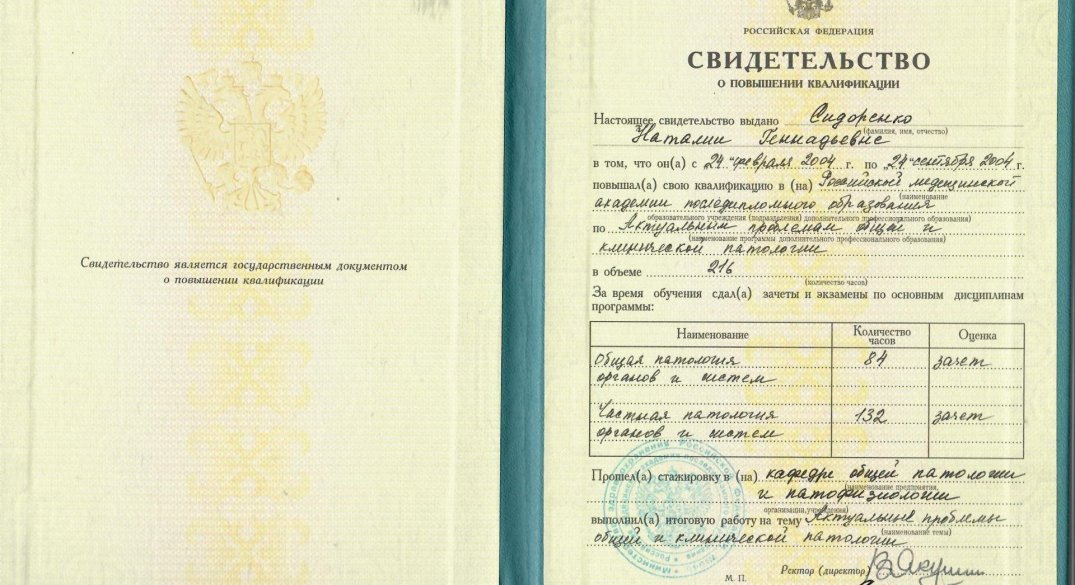 Свидетельство является государственным документом
о повышении квалификации
РОССИЙСКАЯ ФЕДЕРАЦИЯ
СВИДЕТЕЛЬСТВО
О ПОВЫШЕНИИ КВАЛИФИКАЦИИ
Настоящее свидетельство выдано Сидоренко
(фамилия, имя, отчество)
Наталии Геннадьевне
в том, что он(а) с 24 " февраля 2004 г. по 24 " сентября 2004 г.
повышал(а) свою квалификацию в (на) Российской медицинской
(наименование
академии последипломного образования
образовательного учреждения (подразделения) дополнительного профессионального образования)
по Актуальным проблемам общей и
(наименование программы дополнительного профессионального образования)
клинической патологии
в объеме 216
(количество часов)
За время обучения сдал(а) зачеты и экзамены по основным дисциплинам
программы:
Наименование Количество часов Оценка
Общая патология 84 зачет
органов и систем
Частная патология 132 зачет
органов и систем
Прошел(а) стажировку в (на) кафедре общей патологии
(наименование предприятия,
и патофизиологии
организации, учреждения)
выполнил(а) итоговую работу на тему Актуальные проблемы
(наименование темы)
общей и клинической патологии
Ректор (директор)
М. П.